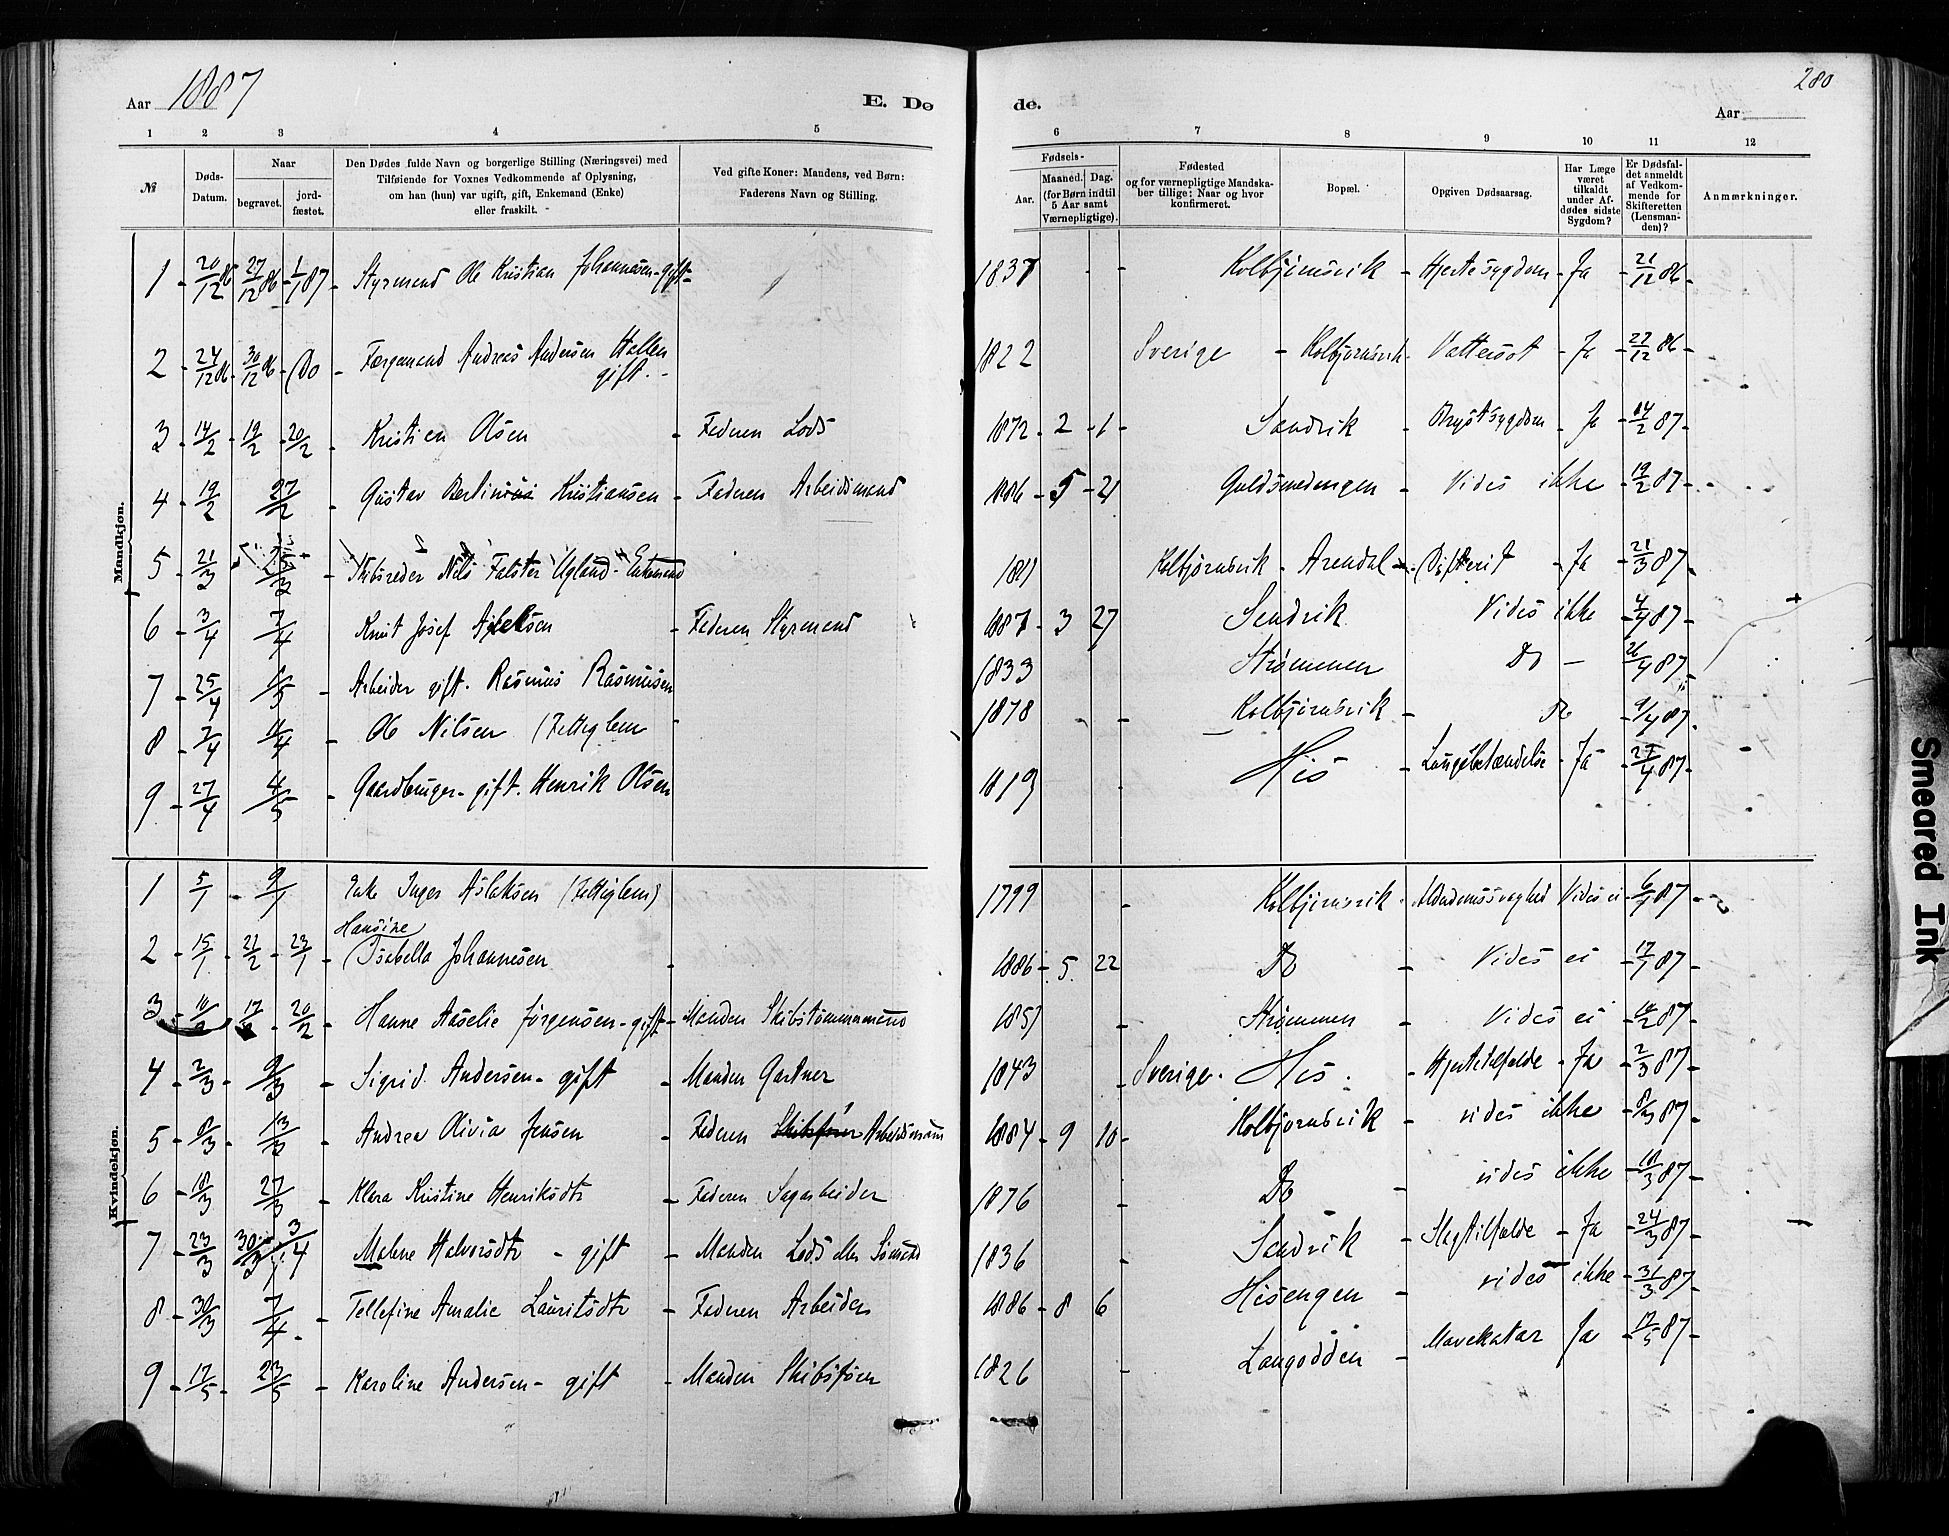 Aar 1887
E. Dø
de.
280
Aar
1 2 3 4 5 6 7 8 9 10 11 12
№
Døds-
Datum.
Naar
begravet.
jord-
fæstet.
Den Dødes fulde Navn og borgerlige Stilling (Næringsvei) med
Tilføiende for Voxnes Vedkommende af Oplysning,
om han (hun) var ugift, gift, Enkemand (Enke)
eller fraskilt.
Ved gifte Koner: Mandens, ved Børn:
Faderens Navn og Stilling.
Fødsels-
Aar.
Maaned. Dag.
(for Børn indtil
5 Aar samt
Værnepligtige).
Fødested
og for værnepligtige Mandska-
ber tillige: Naar og hvor
konfirmeret.
Bopæl.
Opgiven Dødsaarsag.
Har Læge
været
tilkaldt
under Af-
dødes sidste
Sygdom?
Er Dødsfal-
det anmeldt
af Vedkom-
mende for
Skifteretten
(Lensman-
den)?
Anmærkninger.
Mandkjøn.
1 - 20/12 86 27/12 86 1/1 87 - Styrmand Ole Kristian Johannesen - gift - 1837 - - Kolbjørnsvik - Hjertesygdom - Ja - 21/12 86 -
2 - 24/12 86 - 30/12 86 - Do - Færgemand Andreas Andersen Hallen
gift. - 1822 Sverige - Kolbjørnsvik - Vattersot - Ja - 27/12 86 -
3 - 14/2 - 19/2 - 20/2 - Kristian Olsen - Faderen Lods 1872 - 2 - 1 - Sandvik - Brystsygdom - Ja - 14/2 87 -
4 - 19/2 27/2 - Gustav Bertinius Kristiansen - Faderen Arbeidsmand 1886 - 5 - 21 Guldsmedengen - Vides ikke - 19/2 87 -
5 - 21/3 Skibsreder Nils Falster Ugland - Enkemand 1811 Kolbjørnsvik - Arendal - Difterit - Ja - 21/3 87 -
6 - 3/4 7/4 Knut Josef Axelsen - Faderen Styrmand 1887 - 3 27 Sandvik Vides ikke - 4/4 87 -
7 - 25/4 1/5 - Arbeider gift. Rasmus Rasmussen 1833 Strømmen Do - 26/4 87 -
8 - 7/4 11/4 - Ole Nilsen (Fattiglem - 1878 - Kolbjørnsvik - Do 9/4 87 -
9 - 27/4 4/5 - Gaardbruger - gift. Henrik Olsen 1819 His - Lungebetændelse - Ja - 27/4 87 -
Kvindekjøn.
1 5/1 - 9/1 Enke Inger Aslaksen (Fattiglem) 1799 - Kolbjørnsvik - Alderdomssvaghed Vides ei - 6/1 87 -
Hansine
2 - 15/1 - 21/2 - 23/1 - Isabella Johannesen - 1886 - 5 22 Do - Vides ei - 17/1 87 -
3 - 10/2 17/2 - 20/2 - Hanne Aaselie Jørgensen - gift - Manden Skibstømmermand 1851 Strømmen - Vides ei - 14/2 87 -
4 - 2/3 - 9/3 - Sigrid Andersen - gift - Manden Gartner 1843 - Sverige - His. - Hjertetilfælde - Ja - 2/3 87 -
5 - 8/3 - 13/3 - Andrea Olivia Jensen - Faderen Skibsfører Arbeidsmand 1884 - 9 10 - Kolbjørnsvik - vides ikke - 8/3 87 -
6 - 18/3 27/3 - Klara Kristine Henriksdtr - Faderen Sagarbeider 1876 - Do - vides ikke - 18/3 87 -
7 - 23/3 30/3 3/4 - Malene Halvorsdtr - gift - Manden Lods eller Sømand 1836 - Sandvik - Slagtilfælde - Ja - 24/3 87 -
8 - 30/3 7/4 - Tellefine Amalie Lauritsdtr - Faderen Arbeider 1886 - 8 6 Hisengen - vides ikke - 31/3 87 -
9 - 17/5 - 23/5 - Karoline Andersen - gift - Manden Skibsføer 1826 - Langodden - Mavekatar Ja - 17/5 87 -
Smeared Ink